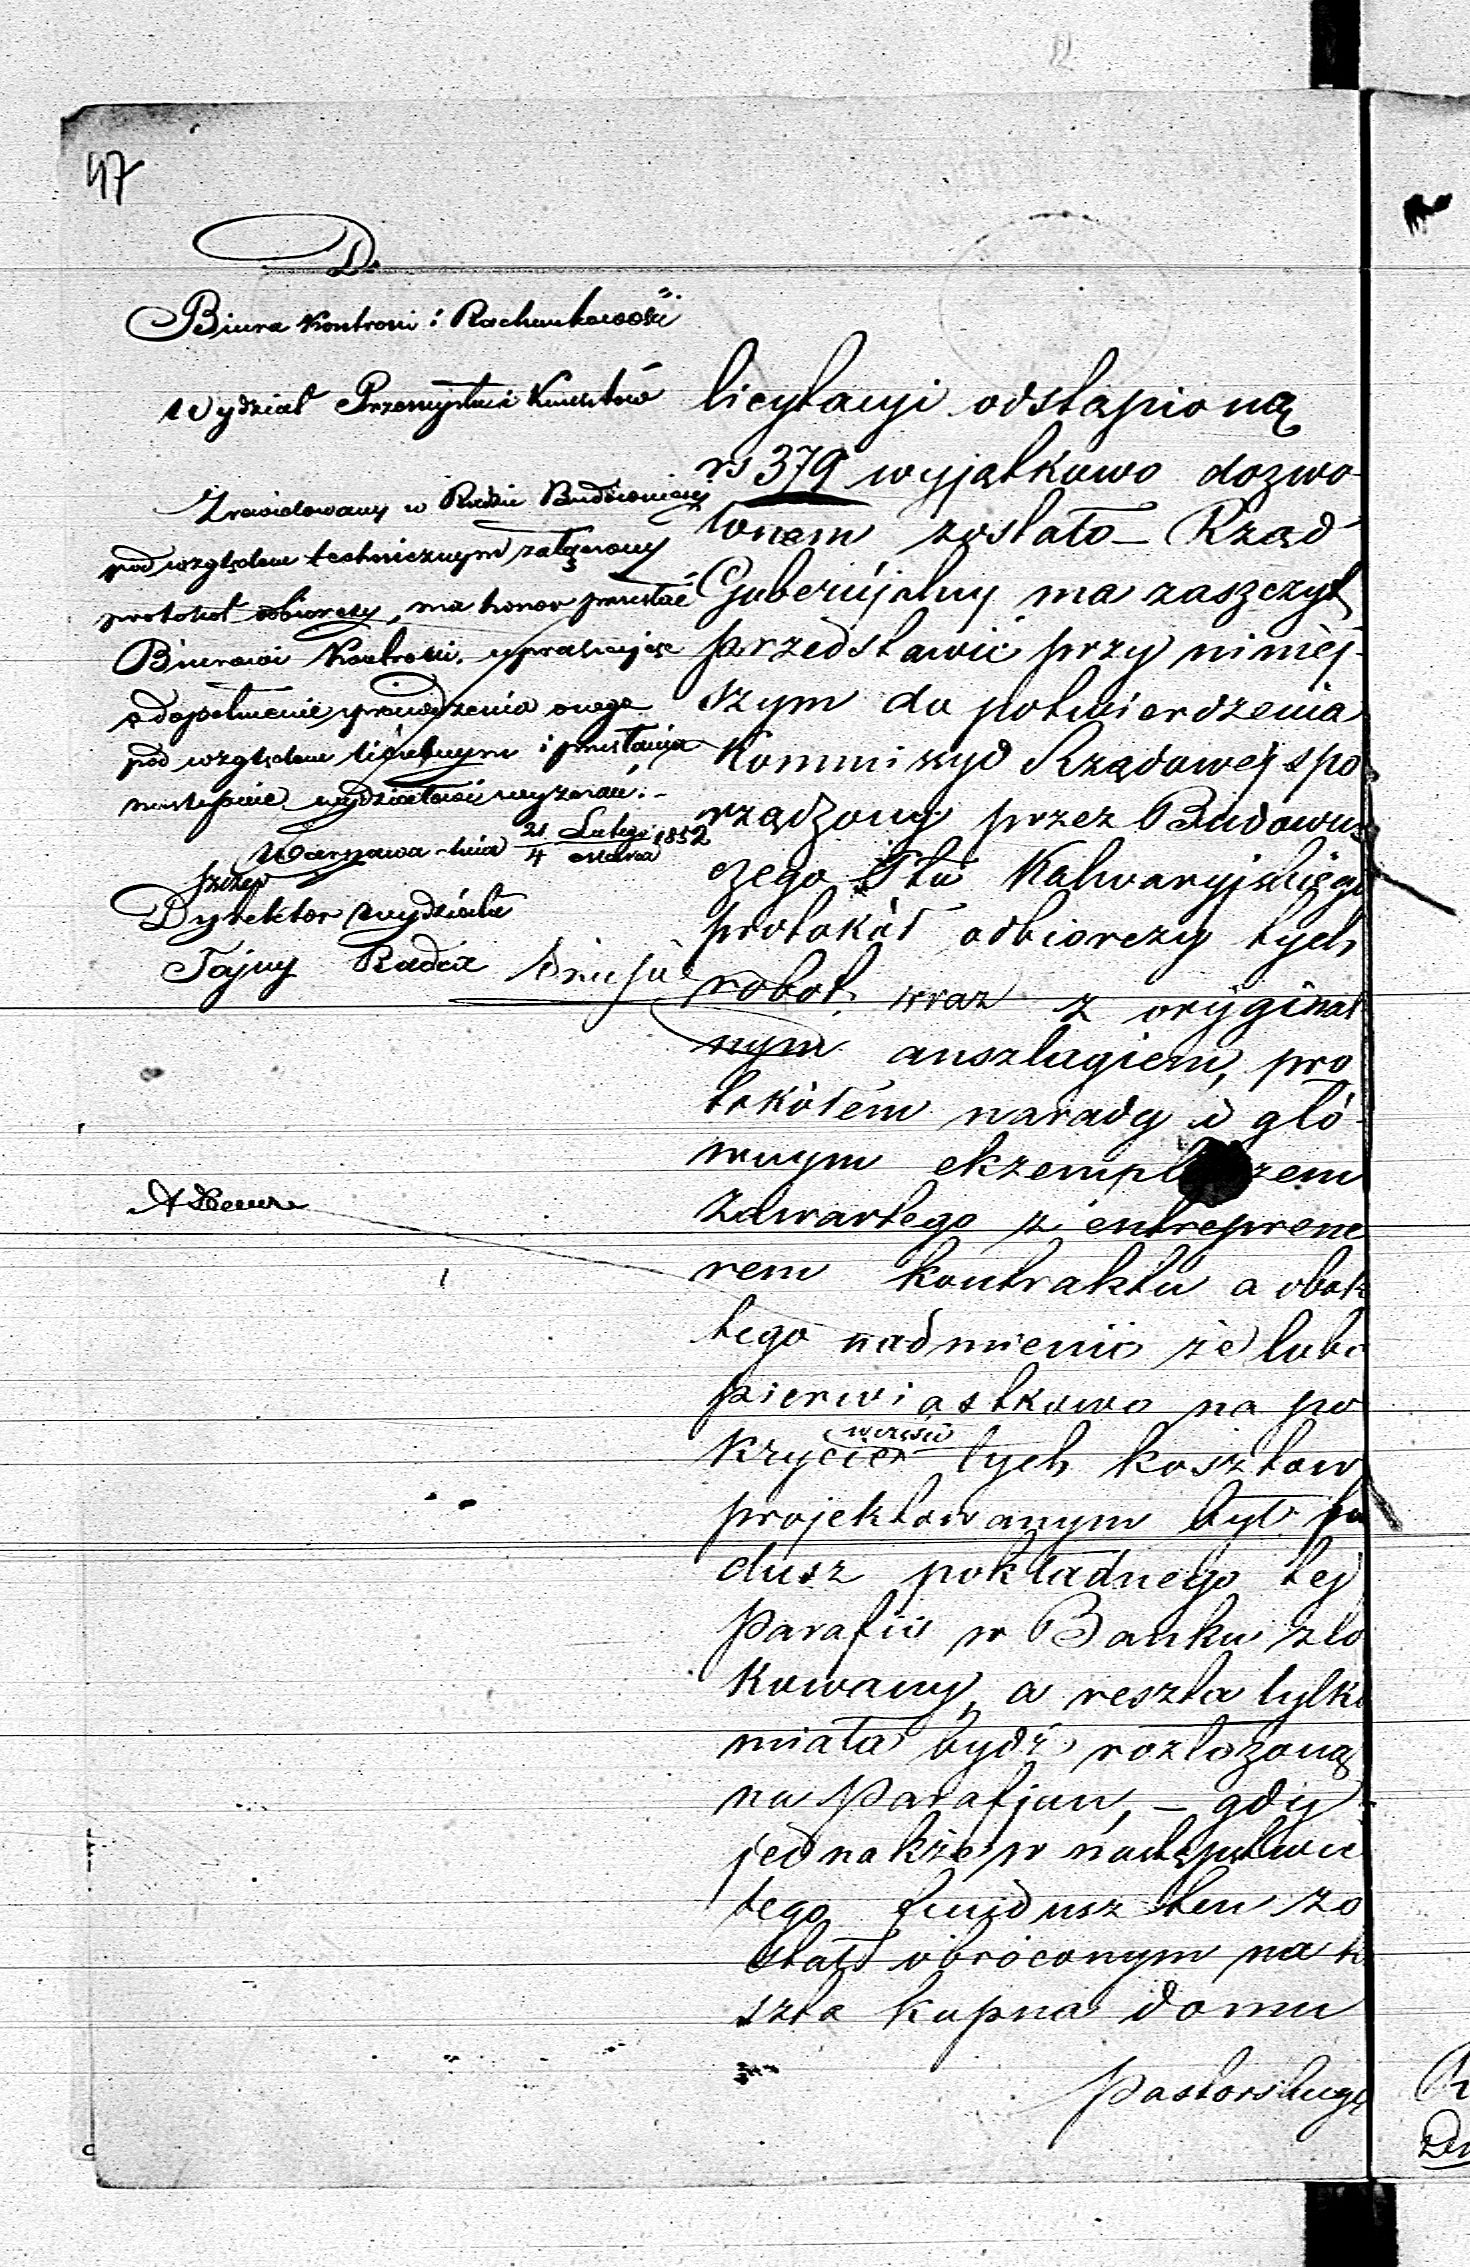 47
D.
Biura Kontroli i Rachunkowości
Wydział Przemysłu i Kunsztów
Zrewidowany w Radzie Budowniczej
pod względem technicznym załączony
protokół odbiorczy, ma honor przesłać
Biurowi Kontroli, upraszając
o dopełnienie sprawdzenia onego
pod względem liczebnym i przesłania
następnie Wydziałowi wyznań.
Warszawa dnia 21 Lutego / 4 Marca 1852
Dyrektor Wydziału
Tajny Radca
licytacyi odstąpioną
rs 379 wyjątkowo dozwo-
lonem zostało – Rząd
Gubernijalny ma zaszczyt
przedstawić przy niniej-
szym do potwierdzenia
Kommissyi Rządowej spo
rządzony przez Budowni
czego Ptu Kalwaryjskiego
protokół odbiorczy tych
robot, wraz z oryginal
nym anszlagiem, pro
tokółem narady i głó-
wnym ekzemplarzem
zawartego z entreprene
rem kontraktu a obok
tego nadmienić że lubo
pierwiastkowo na po
krycie w części tych kosztow
projektowanym był fun
dusz pokładnego tej
Parafii w Banku zlo
kowany, a reszta tylko
miała bydź rozłożoną
na Parafjan, – gdy
jednakże w następstwie
tego fundusz ten zo
stał obróconym na ko
szta kupna domu
Pastorskiego